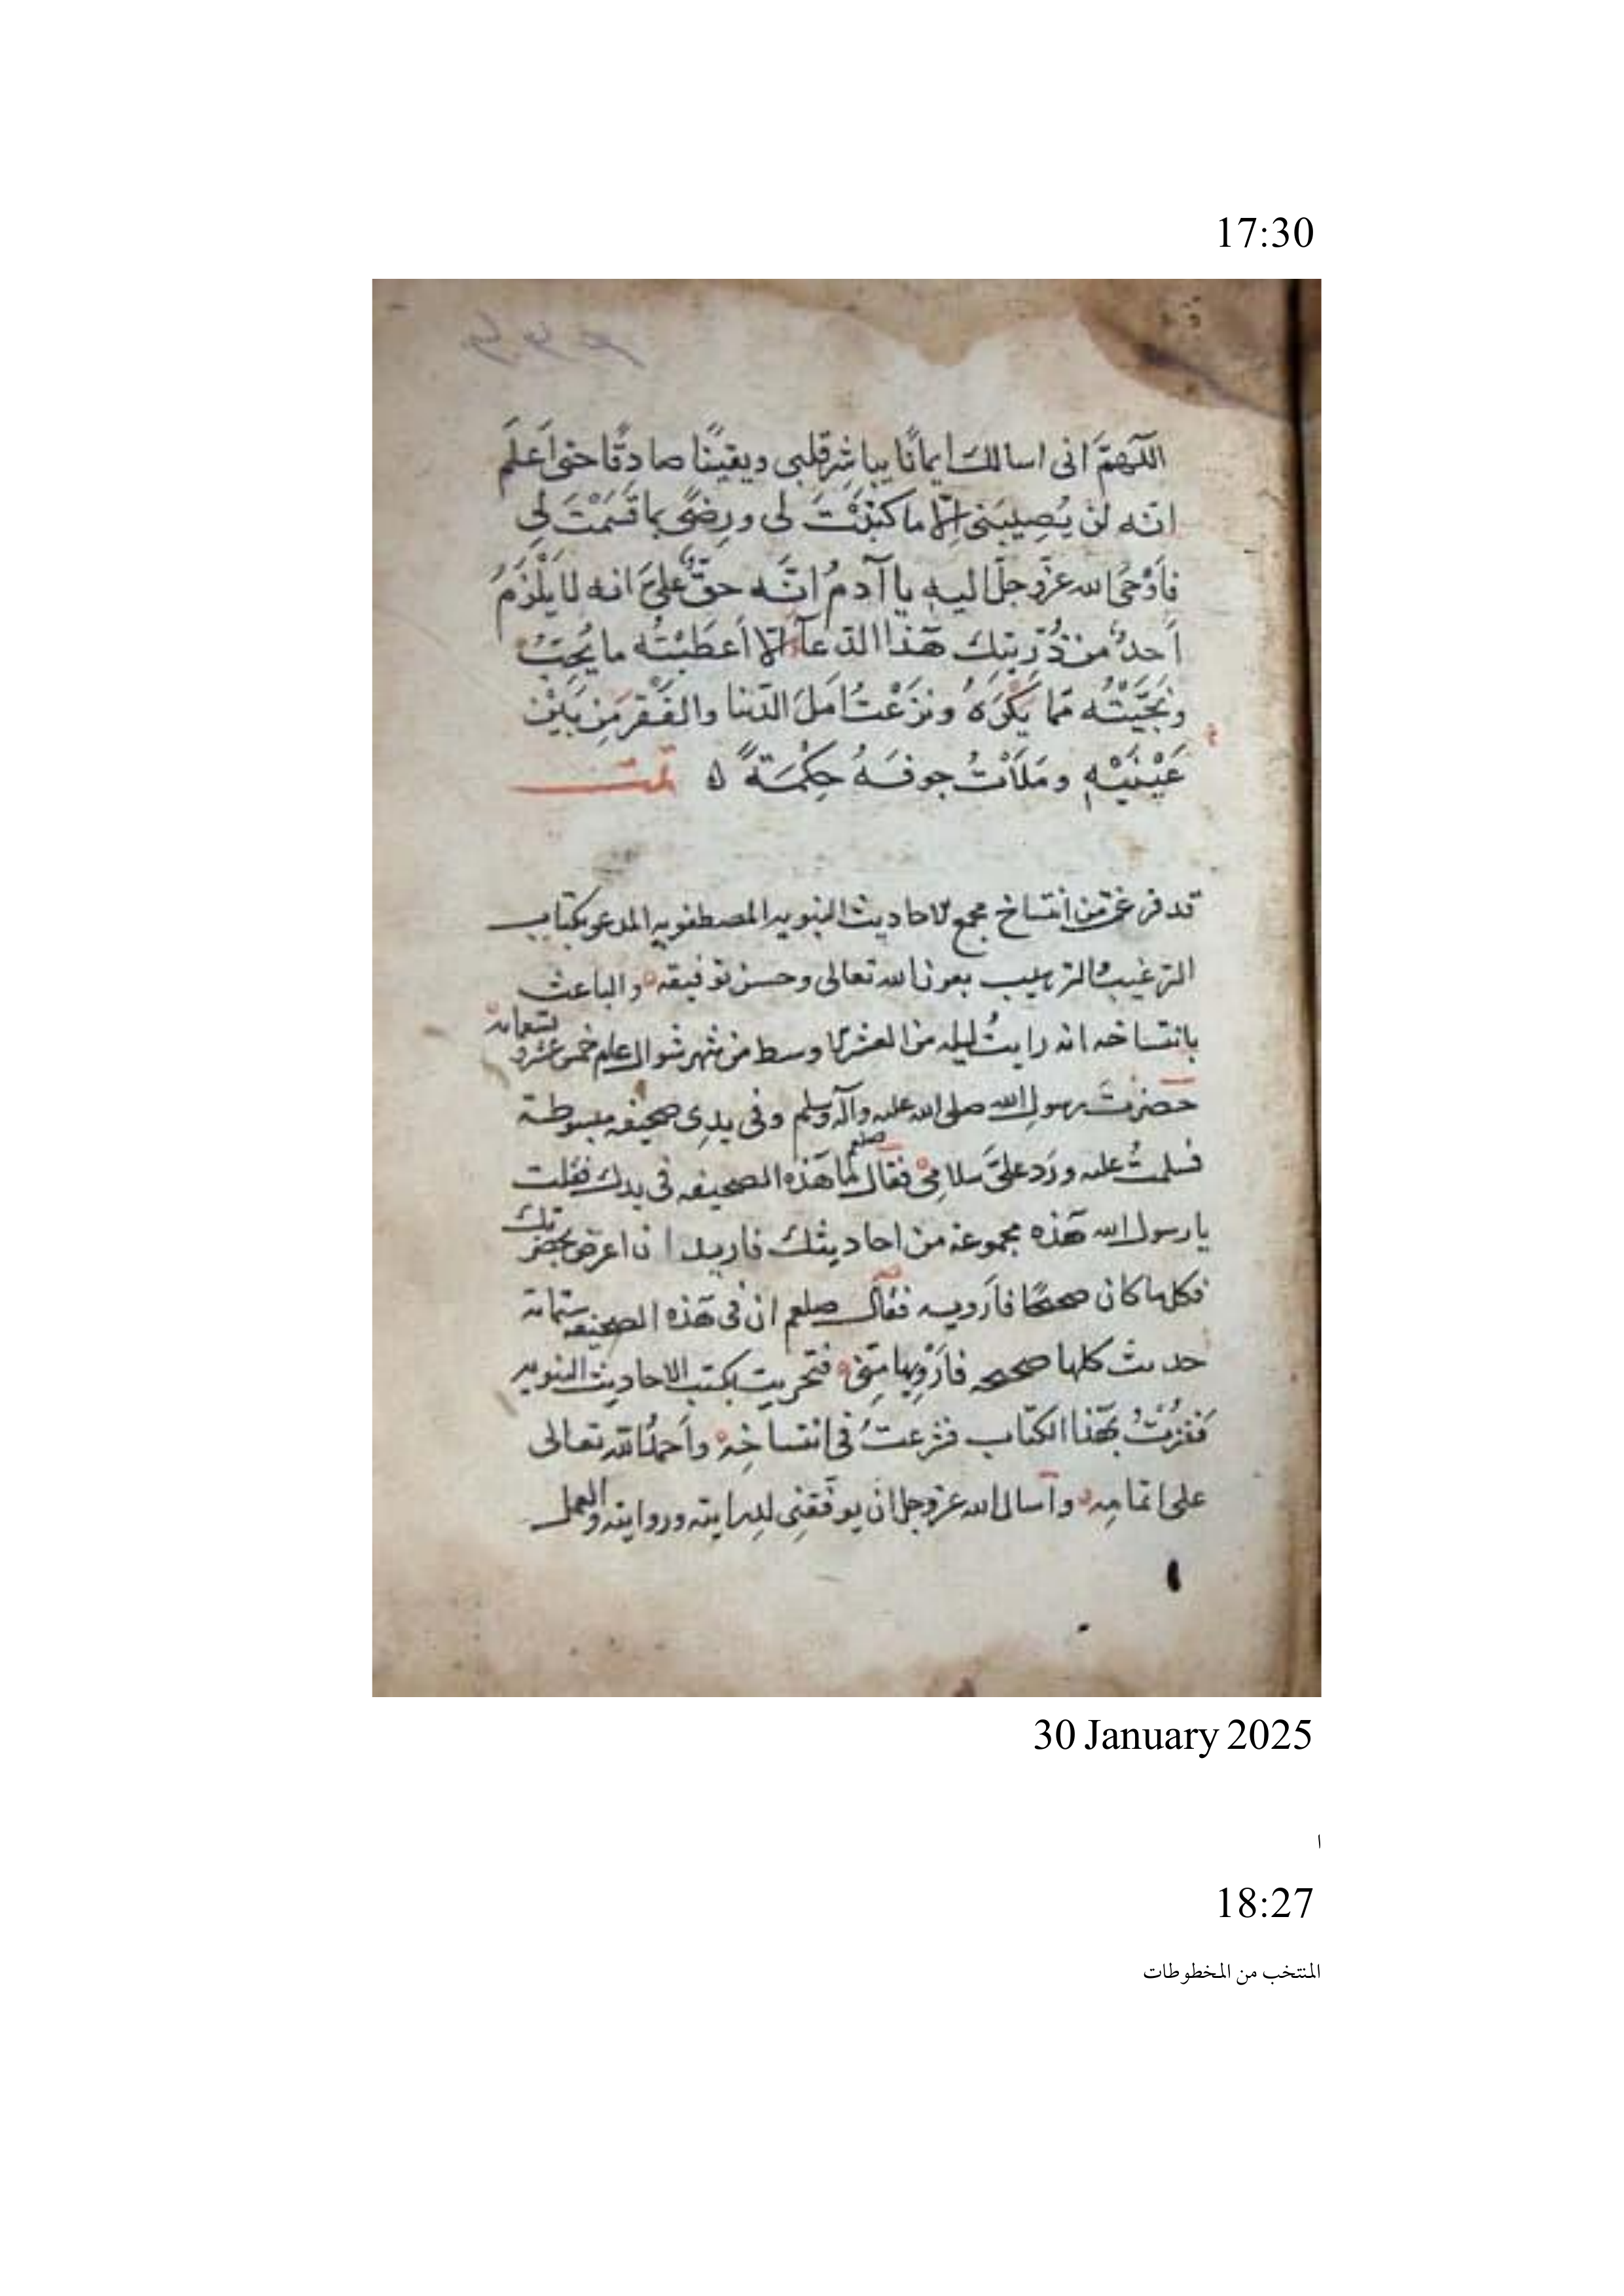 17:30
اللّهمَّ انى اسالكَ ايمانًا يباشِر قلبى ويقينًا صادقًا حتى اَعلَم
انّه لن يُصِيبَنى اِلّا ما كتبْتَ لى ورِضًى بما قَسَمْتَ لِى
فاَوْحَى الله عزّوجلّ اليه يا آدمُ انَّه حقٌّ علىَّ انه لا يَلْزَمُ
اَحدٌ من ذُرِّيتِكَ هٓذا الدّعآء اِلّا اَعطَيْتُه ما يُحِبّ
ونَجَّيْتُه مّما يَكْرَهُ ونَزَعْتُ اَمَلَ الدّنيا والفَقْر مِن بَيْن
عَيْنَيْهِ ومَلَأْتُ جوفَهُ حِكْمَةً ٥ تمّت
قد فرغت من انتساخ مجمع الاحاديث النبويه المصطفويه المدعو بكتاب
الترغيب والترهيب بعون الله تعالى وحسن توفيقه والباعث
بانتساخه انه رايتُ ليله من العشر الاوسط من شهر شوال عام خمس عشر و تسعمائه
حضرتَ رسولِ الله صلى الله عليه وآله وسلم وفى يدِى صحيفه مبسوطة
فسلمتُ عليه ورَد علىَّ سلامِى فقال صلعم لما هٓذه الصحيفه فى يدك فقلت
يا رسول الله هٓذه مجموعه من احاديثك فاريد ان اعرض بحضرتك
فكلما كان صحيحًا فاَرويه فقال صلعم ان فى هٓذه الصحيفة ستمائه
حديث كلها صحيحه فاَرْوِيها مِنّى فتحريت بكتب الاحاديث النبويه
فَفُزْتُ بهٓذا الكتاب فشرعتُ فى انتساخِه واَحمدُ الله تعالى
على اتمامِه واَسال الله عزوجل ان يوفّقنِى لدِرايته وروايته والعمل
30 January 2025
ا
18:27
المنتخب من المخطوطات